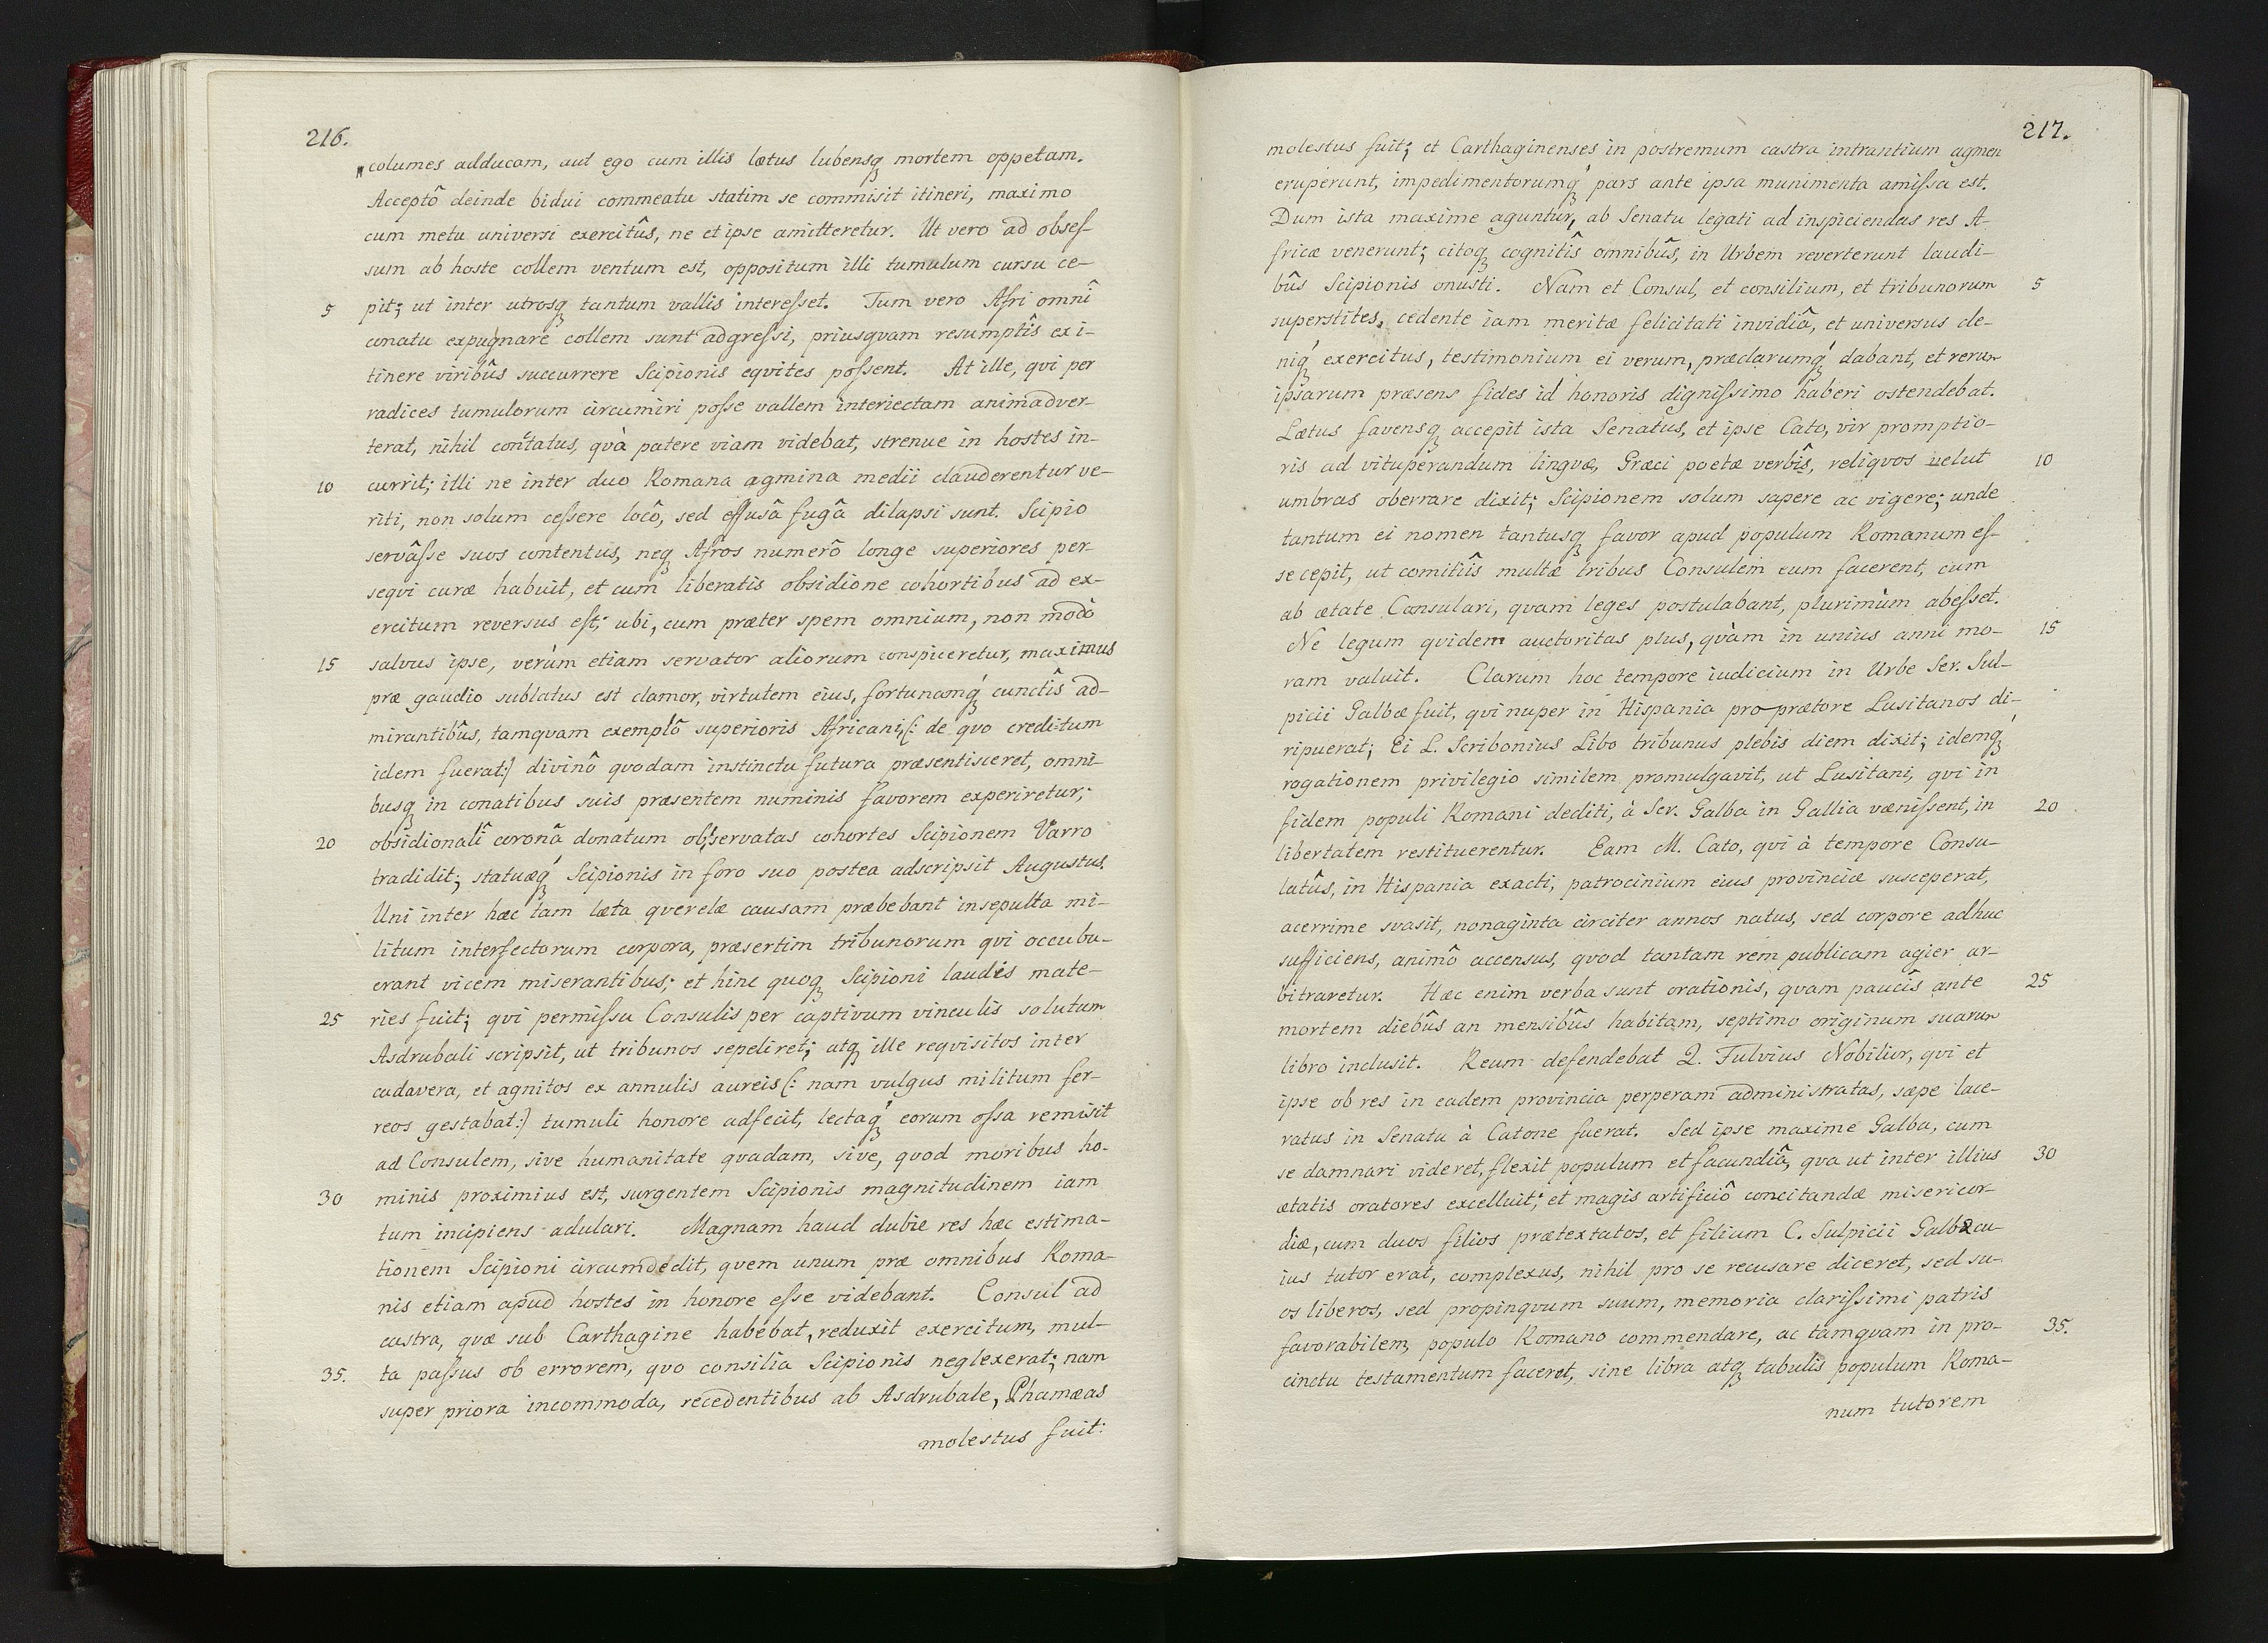 216.
„columes adducam, aut ego cum illis lætus lubensq3 mortem oppetam.
Acceptô deinde bidui commeatu statim se commisit itineri, maximo
cum metu universi exercitûs, ne et ipse amitteretur. Ut vero ad obseſ-
sum ab hoste collem ventum est, oppositum illi tumulum cursu ce-
5 pit; ut inter utrosq3 tantum vallis intereſset. Tum vero Afri omnî
conatu expugnare collem sunt adgreſsi, priusqvam resumptîs ex i-
tinere viribûs succurrere Scipionis eqvites poſsent. At ille, qvi per
radices tumulorum circumiri poſse vallem interiectam animadver-
terat, nihil contatus, qvà patere viam videbat, strenue in hostes in-
10 currit; illi ne inter duo Romana agmina medii clauderentur ve-
riti, non solum ceſsere locô, sed effusâ fugâ dilapsi sunt. Scipio
servâſse suos contentus, neq3 Afros numerô longe superiores per-
seqvi curæ habuit, et cum liberatis obsidione cohortibus ad ex-
ercitum reversus eſt; ubi, cum præter spem omnium, non modò
15 salvus ipse, verùm etiam servator aliorum conspiceretur, maximus
præ gaudio sublatus est clamor, virtutem eius, fortunamq3́ cunctîs ad-
mirantibûs, tamqvam exemplô superioris Africani, (: de qvo creditum
idem fuerat:) divinô qvodam instinctu futura præsentisceret, omni-
busq3 in conatibus suis præsentem numinis favorem experiretur;
20 obsidionalî coronâ donatum ob servatas cohortes Scipionem Varro
tradidit; statuæq3́ Scipionis in foro suo postea adscripsit Augustus.
Uni inter hæc tam læta qverelæ causam præbebant insepulta mi-
litum interfectorum corpora, præsertim tribunorum qvi occubu-
erant vicem miserantibus; et hinc quoq3 Scipioni laudis mate-
25 ries fuit; qvi permiſsu Consulis per captivum vinculis solutum
Asdrubali scripsit, ut tribunos sepeliret; atq3 ille reqvisitos inter
cadavera, et agnitos ex annulis aureis (: nam vulgus militum fer-
reos gestabat:) tumuli honore adfecit, lectaq3́ eorum oſsa remisit
ad Consulem, sive humanitate qvadam, sive, qvod moribus ho-
30 minis proximius est, surgentem Scipionis magnitudinem iam
tum incipiens adulari. Magnam haud dubie res hæc estima-
tionem Scipioni circumdedit, qvem unum præ omnibus Roma-
nis etiam apud hostes in honore eſse videbant. Consul ad
castra, qvæ sub Carthagine habebat, reduxit exercitum, mul-
35. ta paſsus ob errorem, qvo consilia Scipionis neglexerat; nam
super priora incommoda, recedentibus ab Asdrubale, Phamæas
molestus fuit:
217.
molestus fuit; et Carthaginenses in postremum castra intrantium agmen
eruperunt, impedimentorumq3́ pars ante ipsa munimenta amiſsa est.
Dum ista maxime aguntur, ab Senatu legati ad inspiciendas res A-
fricæ venerunt; citoq3 cognitîs omnibûs, in Urbem reverterunt laudi-
bûs Scipionis onusti. Nam et Consul, et consilium, et tribunorum 5
superstites, cedente iam meritæ felicitati invidiâ, et universus de-
niq3́ exercitus, testimonium ei verum, præclarumq3́ dabant, et rerum
ipsarum præsens fides id honoris digniſsimo haberi ostendebat.
Lætus favensq3 accepit ista Senatus, et ipse Cato, vir promptio-
ris ad vituperandum lingvæ, Græci poetæ verbîs, reliqvos velut 10
umbras oberrare dixit; Scipionem solum sapere ac vigere; unde
tantum ei nomen tantusq3 favor apud populum Romanum eſ-
se cepit, ut comitiis multæ tribus Consulem eum facerent, cum
ab ætate Consulari, qvam leges postulabant, plurimùm abeſset.
Ne legum qvidem auctoritas plus, qvàm in unius anni mo- 15
ram valuit. Clarum hoc tempore iudicium in Urbe Ser. Sul-
picii Galbæ fuit, qvi nuper in Hispania pro prætore Lusitanos di-
ripuerat; Ei L. Scribonius Libo tribunus plebis diem dixit; idemq3́
rogationem privilegio similem promulgavit, ut Lusitani, qvi in
fidem populi Romani dediti, à Ser. Galba in Gallia væniſsent, in 20
libertatem restituerentur. Eam M. Cato, qvi à tempore Consu-
latûs, in Hispania exacti, patrocinium eius provinciæ susceperat,
acerrime svasit, nonaginta circiter annos natus, sed corpore adhuc
sufficiens, animô accensus, qvod tantam rem publicam agier ar-
bitraretur. Hæc enim verba sunt orationis, qvam paucîs ante 25
mortem diebûs an mensibûs habitam, septimo originum suarum
libro inclusit. Reum defendebat Q. Fulvius Nobilior, qvi et
ipse ob res in eadem provincia perperam administratas, sæpe lace-
ratus in Senatu à Catone fuerat. Sed ipse maxime Galba, cum
se damnari videret, flexit populum et facundiâ, qva ut inter illius 30
ætatis oratores excelluit; et magis artificiô concitandæ misericor-
diæ, cum duos filios prætextatos, et filium C. Sulpicii Galbæ cu-
ius tutor erat, complexus, nihil pro se recusare diceret, sed su-
os liberos, sed propinqvum suum, memoria clariſsimi patris
favorabilem, populo Romano commendare, ac tamqvam in pro- 35.
cinctu testamentum faceret, sine libra atq3 tabulis populum Roma-
num tutorem